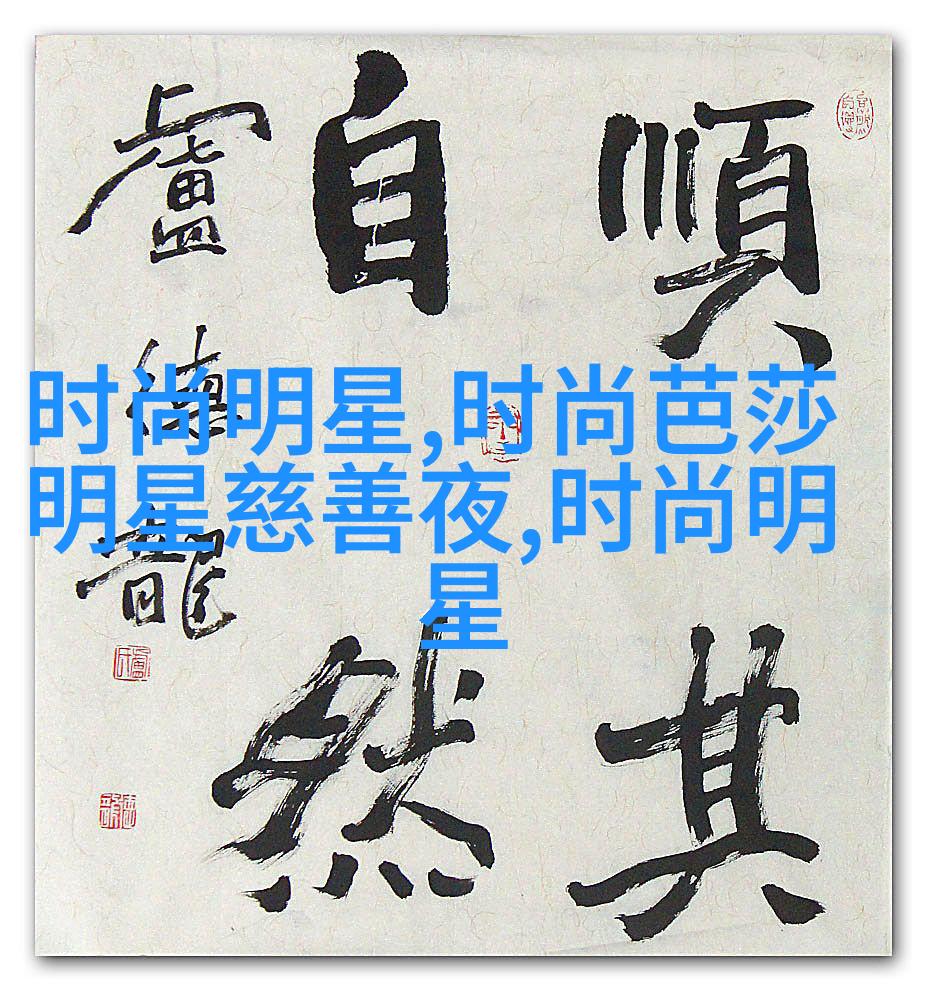 順其
自然
盧德龍
时尚明星,时尚芭莎
明星慈善夜,时尚明
星